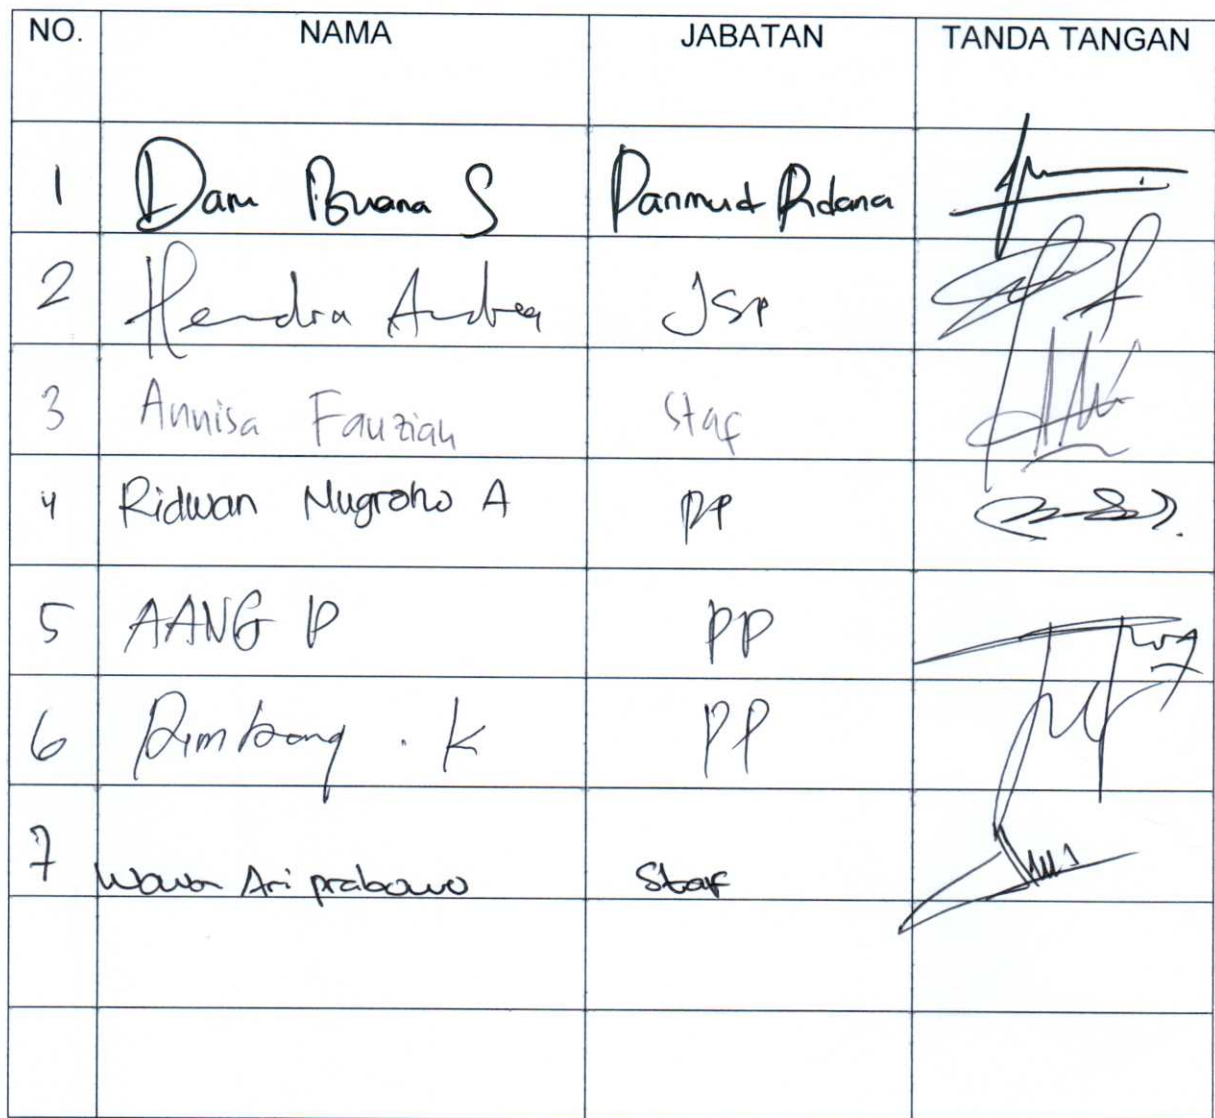 NO. NAMA JABATAN TANDA TANGAN
1 Dam Buana S Panmud Pidana
2 Hendra Andrea JSP
3 Annisa Fauziah Staf
4 Ridwan Nugroho A PP
5 AANG P PP
6 K PP
7 Ari prabowo Staf